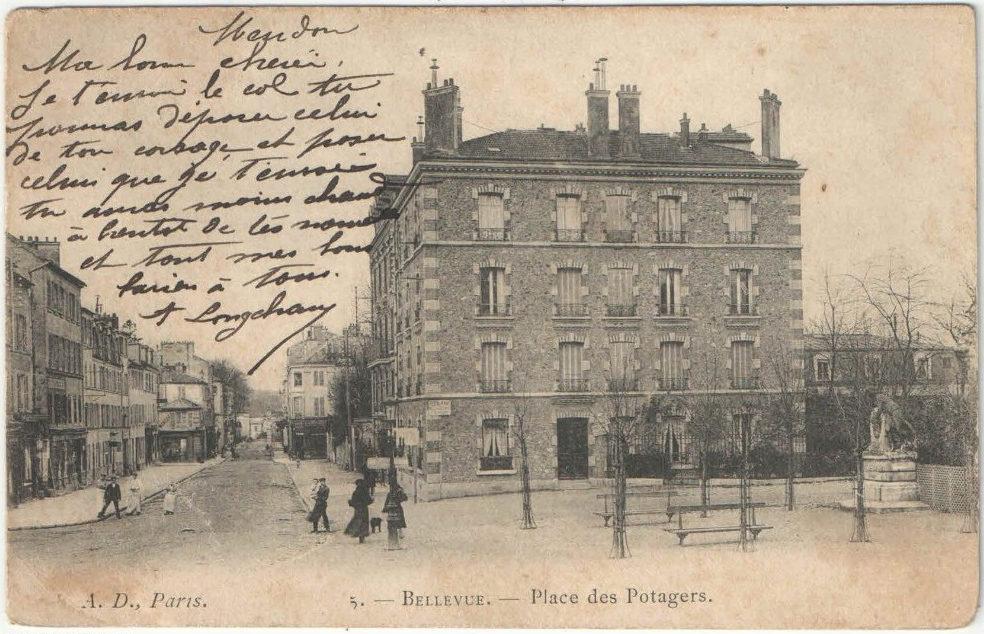 Meudon
Ma bonne chérie,
Je t'envoi le col tu
pourras déposer celui
de ton corsage et poser
celui que je t'envoie
tu auras moins chaud
à bientot de tes nouvelles
et tout mes bons
baisers à tous.
A Longchamp
A. D., Paris.
5. — BELLEVUE. — Place des Potagers.